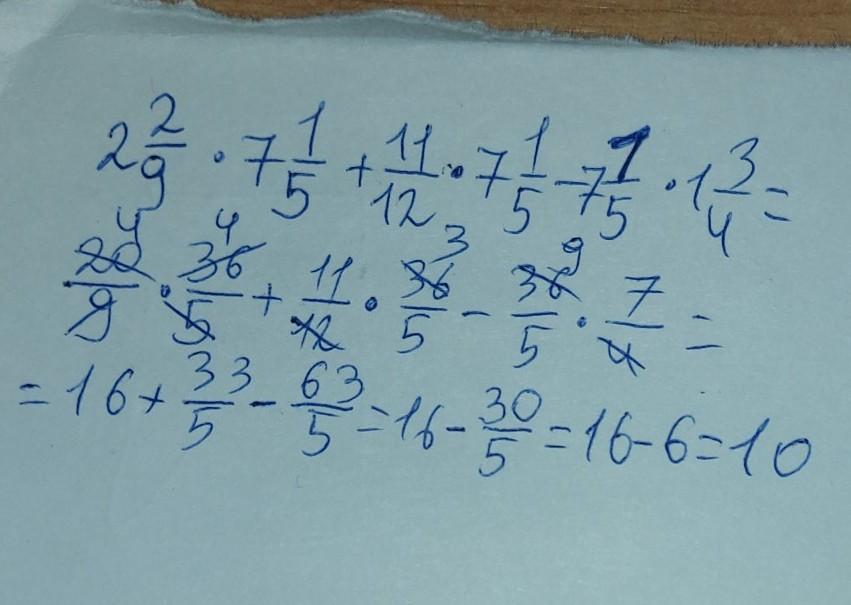 2 2/9 · 7 1/5 + 11/12 · 7 1/5 - 7 1/5 · 1 3/4 =
20/9 · 36/5 + 11/12 · 36/5 - 36/5 · 7/4 =
= 16 + 33/5 - 63/5 = 16 - 30/5 = 16 - 6 = 10